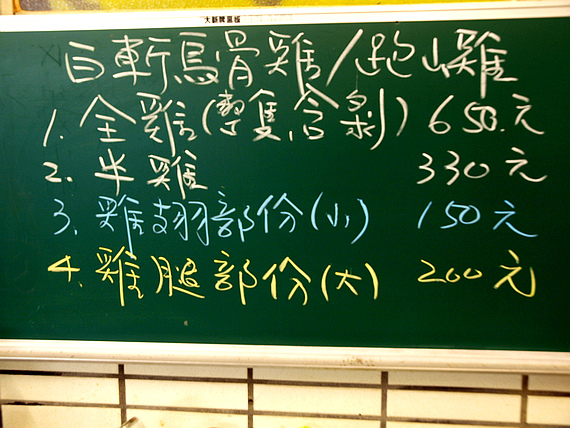 大新牌黑板
白斬烏骨雞/跑山雞
1. 全雞(整隻含剁) 650.元
2. 半雞 330元
3. 雞翅部份(小) 150元
4. 雞腿部份(大) 200元